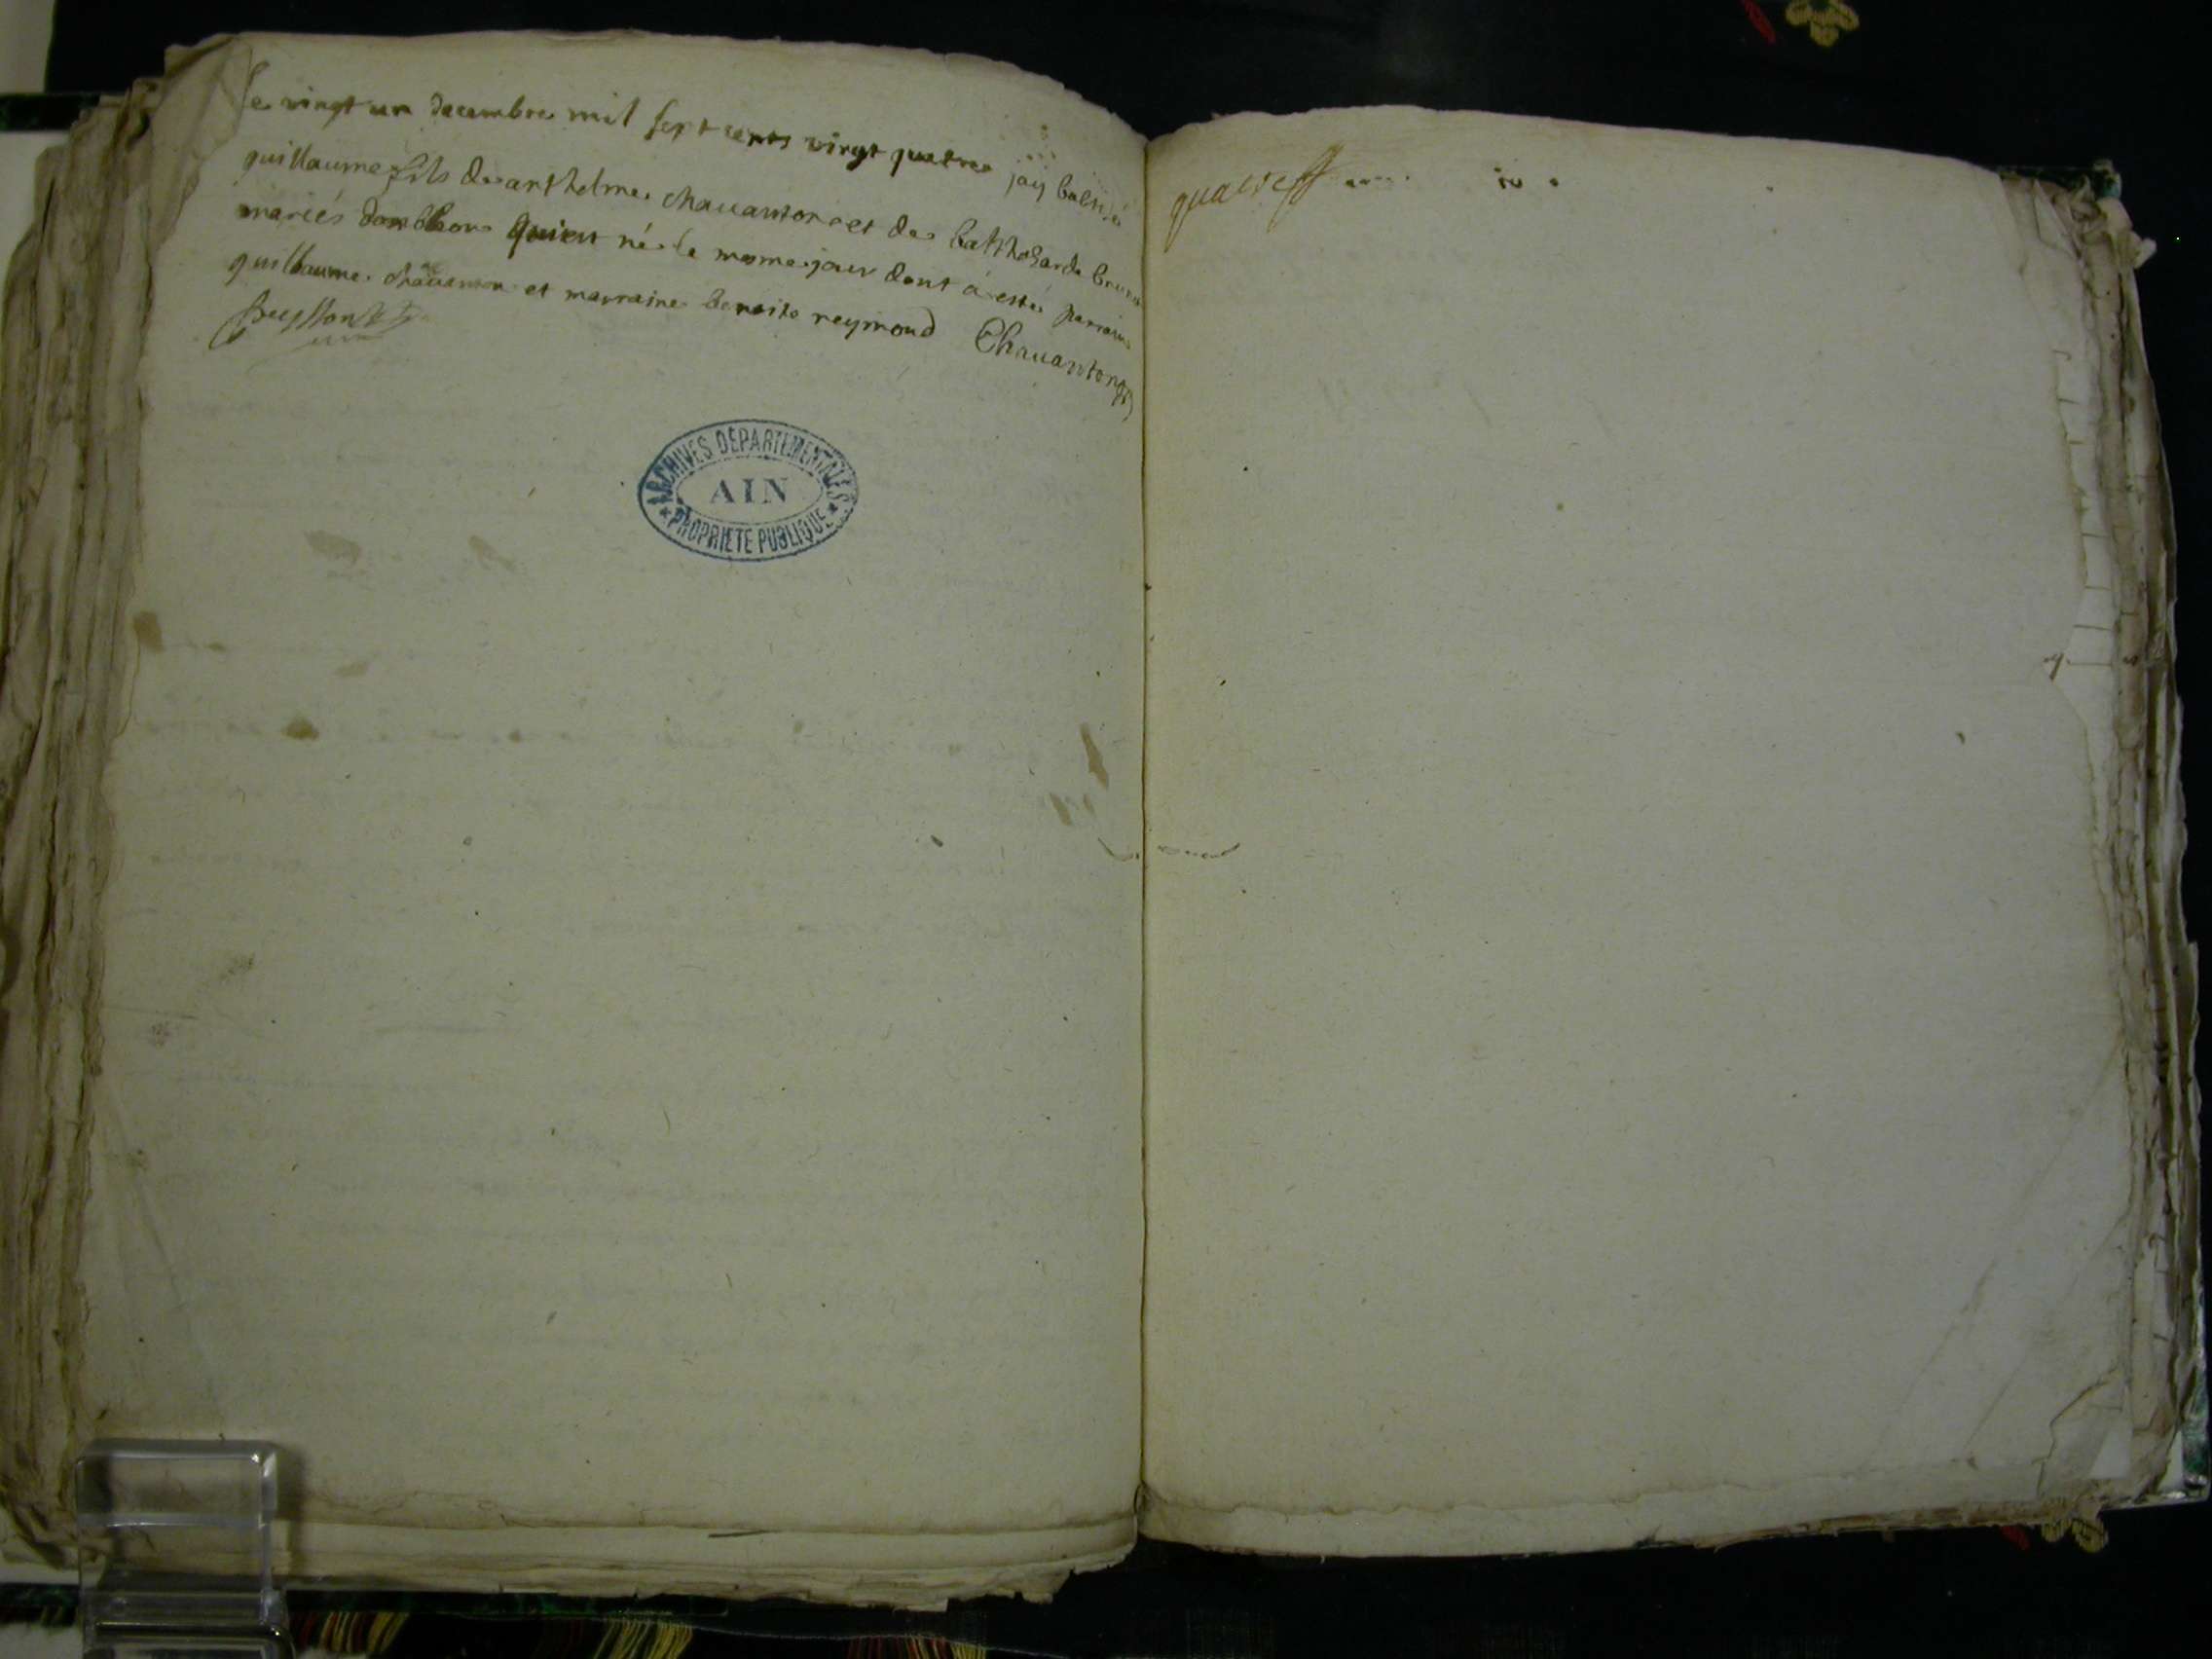 le vingt un decembre mil sept cents vingt quatre jay batisé
guillaume fils de anthelme chavanton et de balthesarde brunet
mariés qui est né le mesme jour dont à esté parrain
guillaume chavanton et marraine benoite reymond Chavanton
ARCHIVES DÉPARTEMENTALES
AIN
PROPRIÉTÉ PUBLIQUE